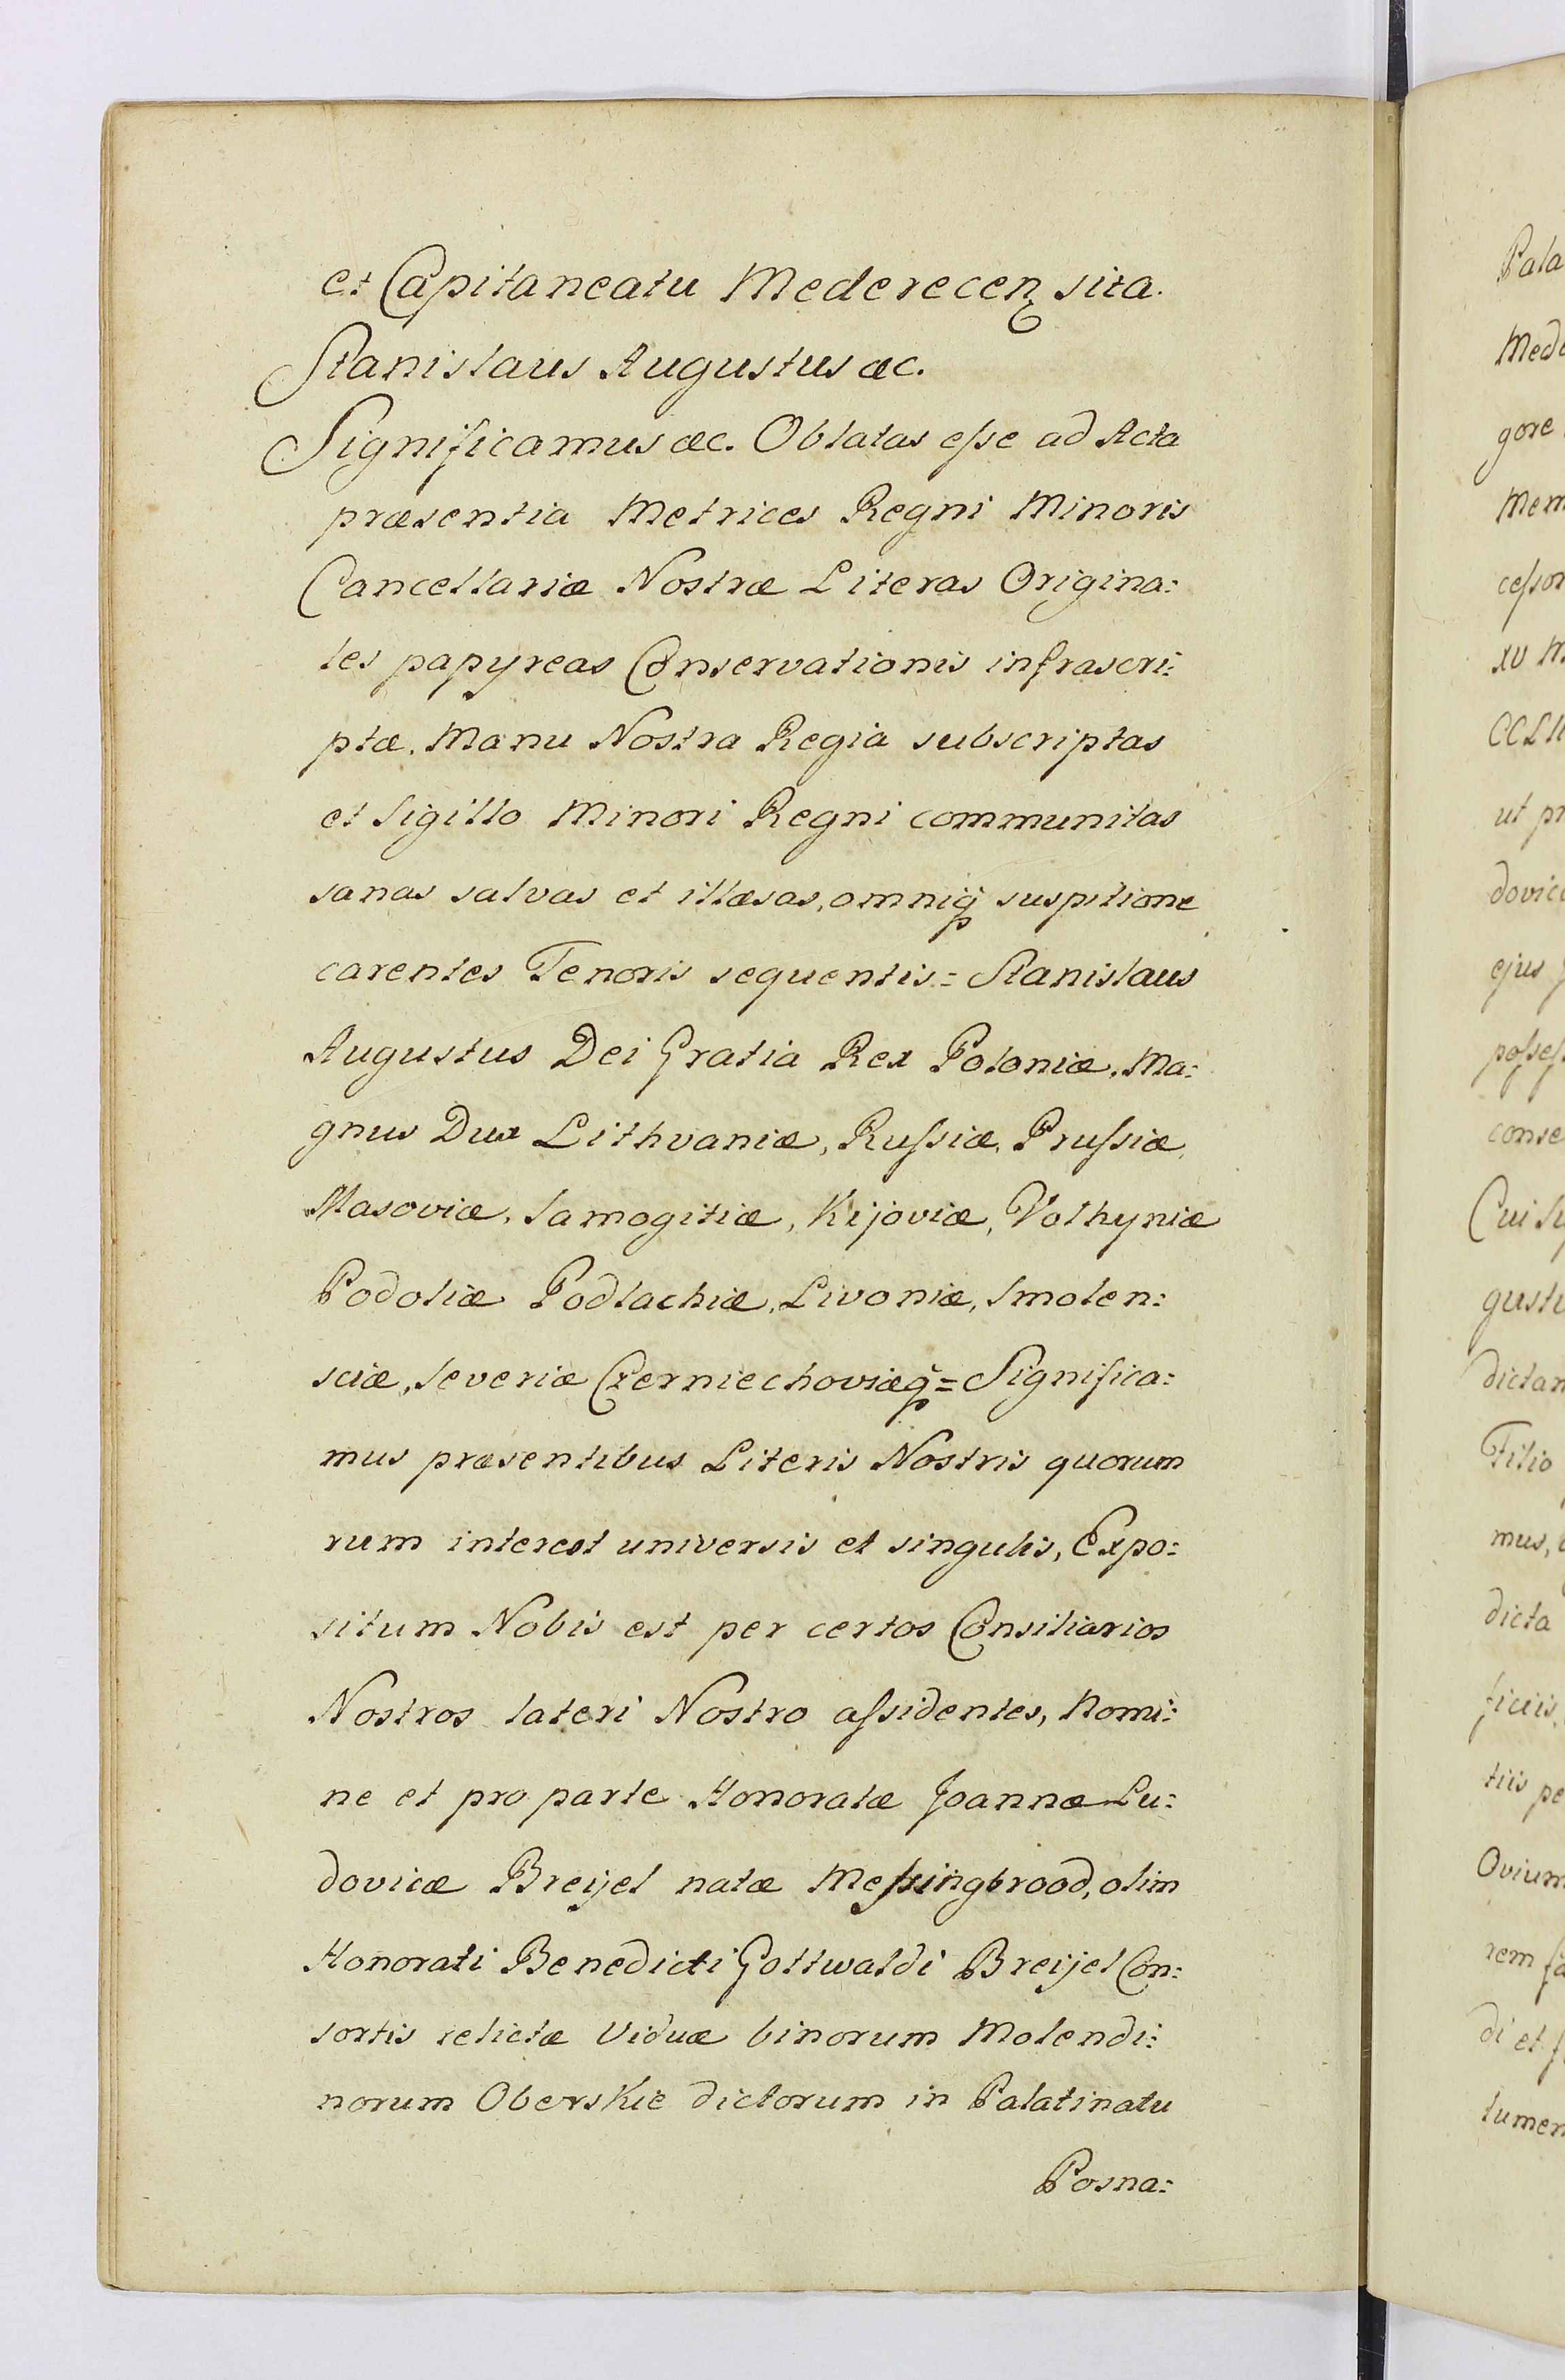 et Capitaneatu Mederecen sita.
Stanislaus Augustus &c.
Significamus &c. Oblatas eſse ad Acta
præsentia Metrices Regni Minoris
Cancellariæ Nostræ Literas Origina:
les papyreas Conservationis infrascri:
ptæ, Manu Nostra Regia subscriptas
et Sigillo Minori Regni communitas
sanas salvas et illæsas, omniq̃ suspitione
carentes Tenoris sequentis = Stanislaus
Augustus Dei Gratia Rex Poloniæ, Ma:
gnus Dux Lithvaniæ, Ruſsiæ, Pruſsiæ,
Masoviæ, Samogitiæ, Kijoviæ, Volhyniæ
Podoliæ Podlachiæ, Livoniæ, Smolen:
sciæ, Severiæ Czerniechoviæq̃ = Significa:
mus præsentibus Literis Nostris quorum
rum interest universis et singulis, Expo:
situm Nobis est per certos Consiliarios
Nostros lateri Nostro aſsidentes, Nomi:
ne et pro parte Honoratæ Joannæ Lu:
dovicæ Breijel natæ Meſsingbrood, olim
Honorati Benedicti Gottwaldi Breijel Con:
sortis relictæ Viduæ binorum Molendi:
norum Oberskie dictorum in Palatinatu
Posna:
Pala
Mede
gore
Mem
ceſsor
XV M
CCLII
ut pr
dovicæ
ejus
poſseſ
conse
Cui
gustu
dictam
Filio
mus,
dicta
ficiis
tiis pe
Ovium
rem fa
di et f
lumen